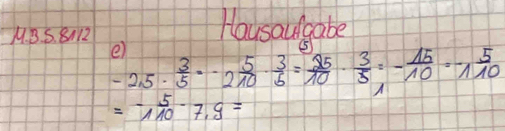 M.B.S. 8/12 Hausaufgabe
e)
-2,5 · 3/5 = -2 5/10 · 3/5 = 25/10 · 3/5 = -15/10 = -1 5/10
= -1 5/10 - 7,9 =